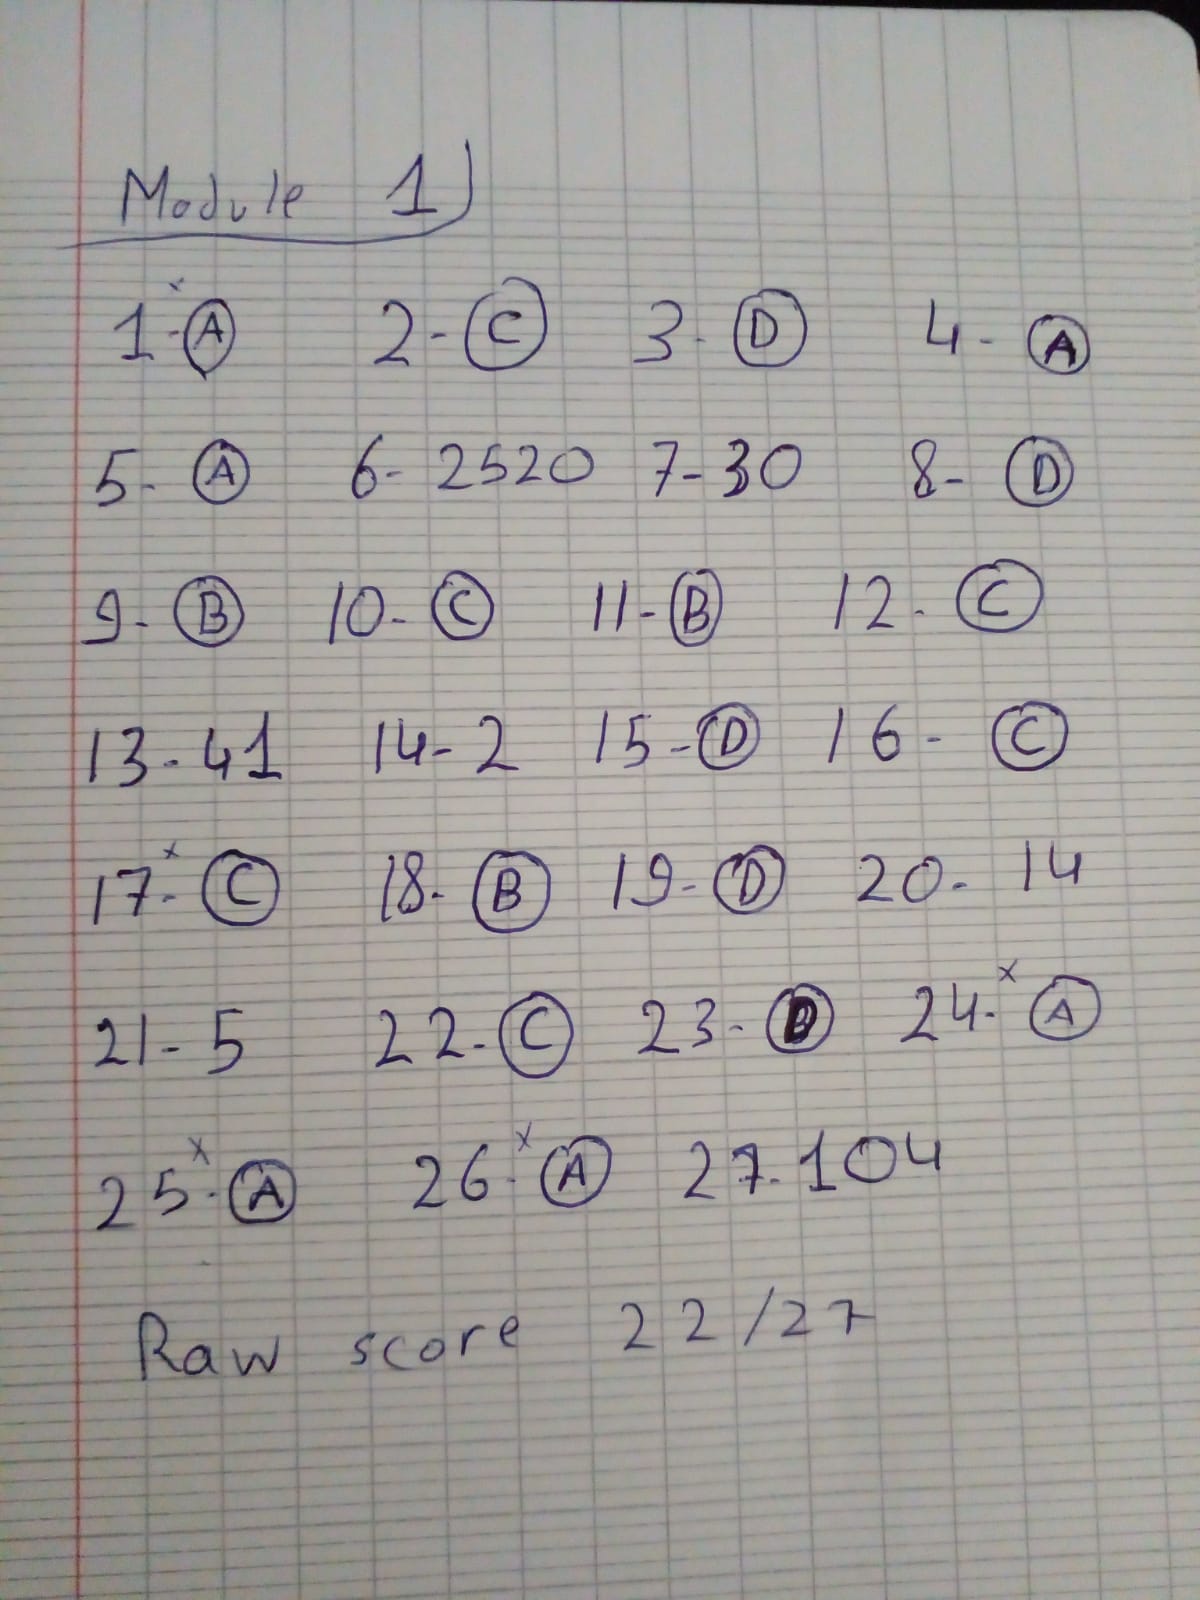 Module 1)
1-ˣ A 2- C 3- D 4- A
5- A 6- 2520 7- 30 8- D
9- B 10- C 11- B 12- C
13- 41 14- 2 15- D 16- C
17-ˣ C 18- B 19- D 20- 14
21- 5 22- C 23- 24-ˣ A
25-ˣ A 26-ˣ A 27- 104
Raw score 22/27